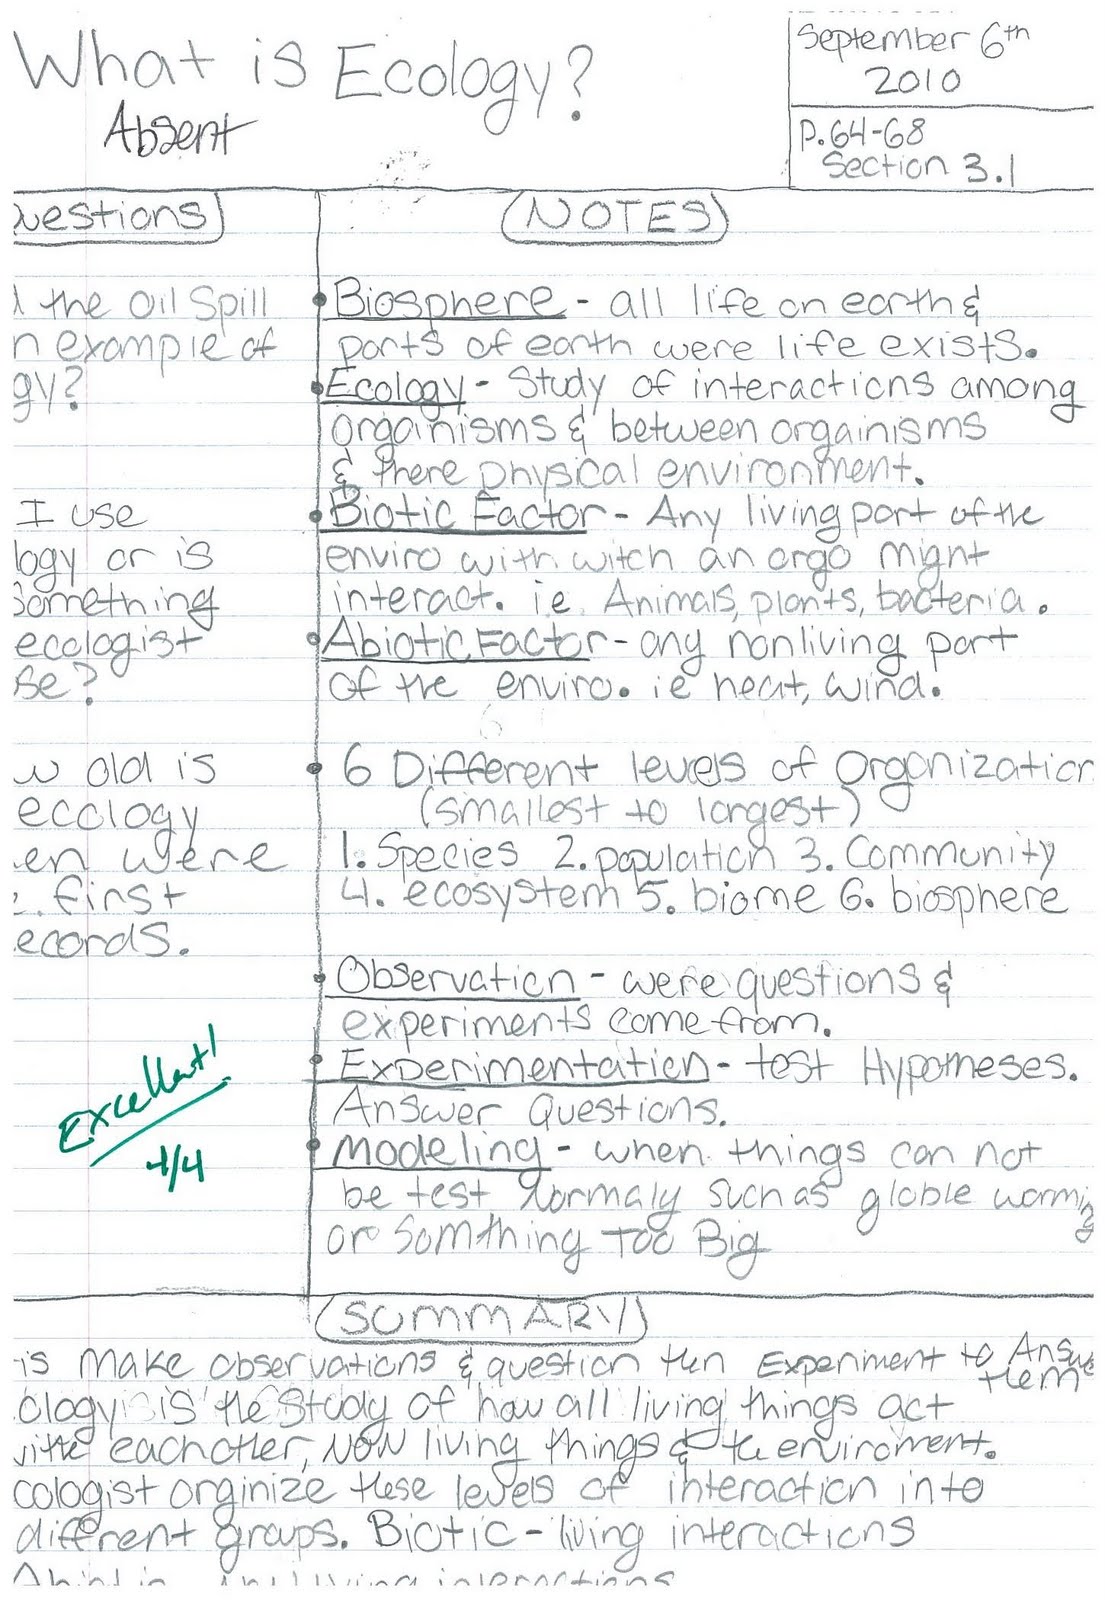 What is Ecology?
Absent
September 6th
2010
P.64-68
Section 3.1
uestions
the Oil Spill
n example of
gy?
I use
logy or is
Something
ecologist
se?
w old is
ecology
en were
first
ecords.
Excellent!
4/4
NOTES
Biosphere - all life on earth &
parts of earth were life exists.
Ecology - Study of interactions among
organisms & between orgainisms
& there physical environment.
Biotic Factor - Any living part of the
enviro with witch an orgo might
interact. i.e. Animals, plants, bacteria.
Abiotic Factor - any nonliving part
of the enviro. ie heat, wind.
6 Different levels of Organization
(smallest to largest)
1. Species 2. population 3. Community
4. ecosystem 5. biome 6. biosphere
Observation - were questions &
experiments come from.
Experimentation - test Hypotheses.
Answer Questions.
Modeling - when things can not
be test Normaly such as globle warming
or Somthing Too Big
SUMMARY
is Make observations & question then Experiment to Answe
them
ology is the Study of how all living things act
with eachother, Non living things & the enviroment.
cologist orginize these levels of interaction into
different groups. Biotic - living interactions